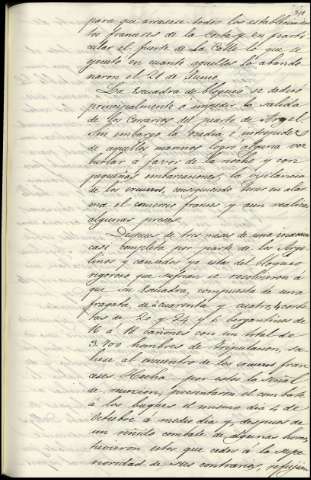 para que arrasase todos los establecimien
tos franceses de la Costa y en parti
cular el fuerte de La Calle lo que se
ejecutó en cuanto aquellos lo abando
naron el 21 de Junio.
La Escuadra de bloqueo se dedicó
principalmente a impedir la salida
de los Corsarios del puerto de Argel.
Sin embargo la osadía e intrepidez
de aquellos marinos logró alguna vez
burlar á favor de la noche y con
pequeñas embarcaciones, la vigilancia
de los cruceros, consiguiendo poner en alar
ma el comercio francés y aun realizar
algunas presas.
Despues de tres meses de una inaccion
casi completa por parte de los Arge
linos y cansados ya estos del bloqueo
rigoroso que sufrian se resolvieron a
que su Escuadra, compuesta de una
fragata de cuarenta, cuatro corbe
tas de 20 y 24, y 6 bergantines de
16 á 18 cañones con un total de
3.900 hombres de tripulacion, sa
liese al encuentro de los cruceros fran
ceses. Hecha por estos la señal
de reunion, presentaron el combate
á los buques el mismo dia 4 de
Octubre á medio dia y, despues de
un reñido combate de algunas horas
tuvieron estos que ceder á la supe
rioridad de sus contrarios,